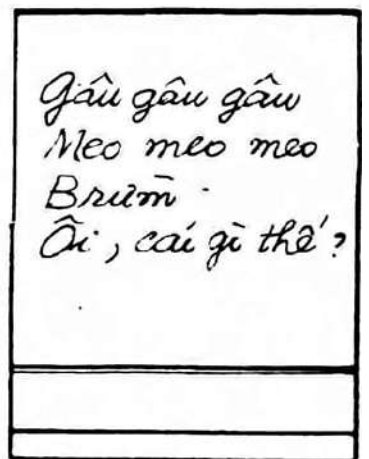 Gâu gâu gâu
Meo meo meo
Brừm
Ôi, cái gì thế?